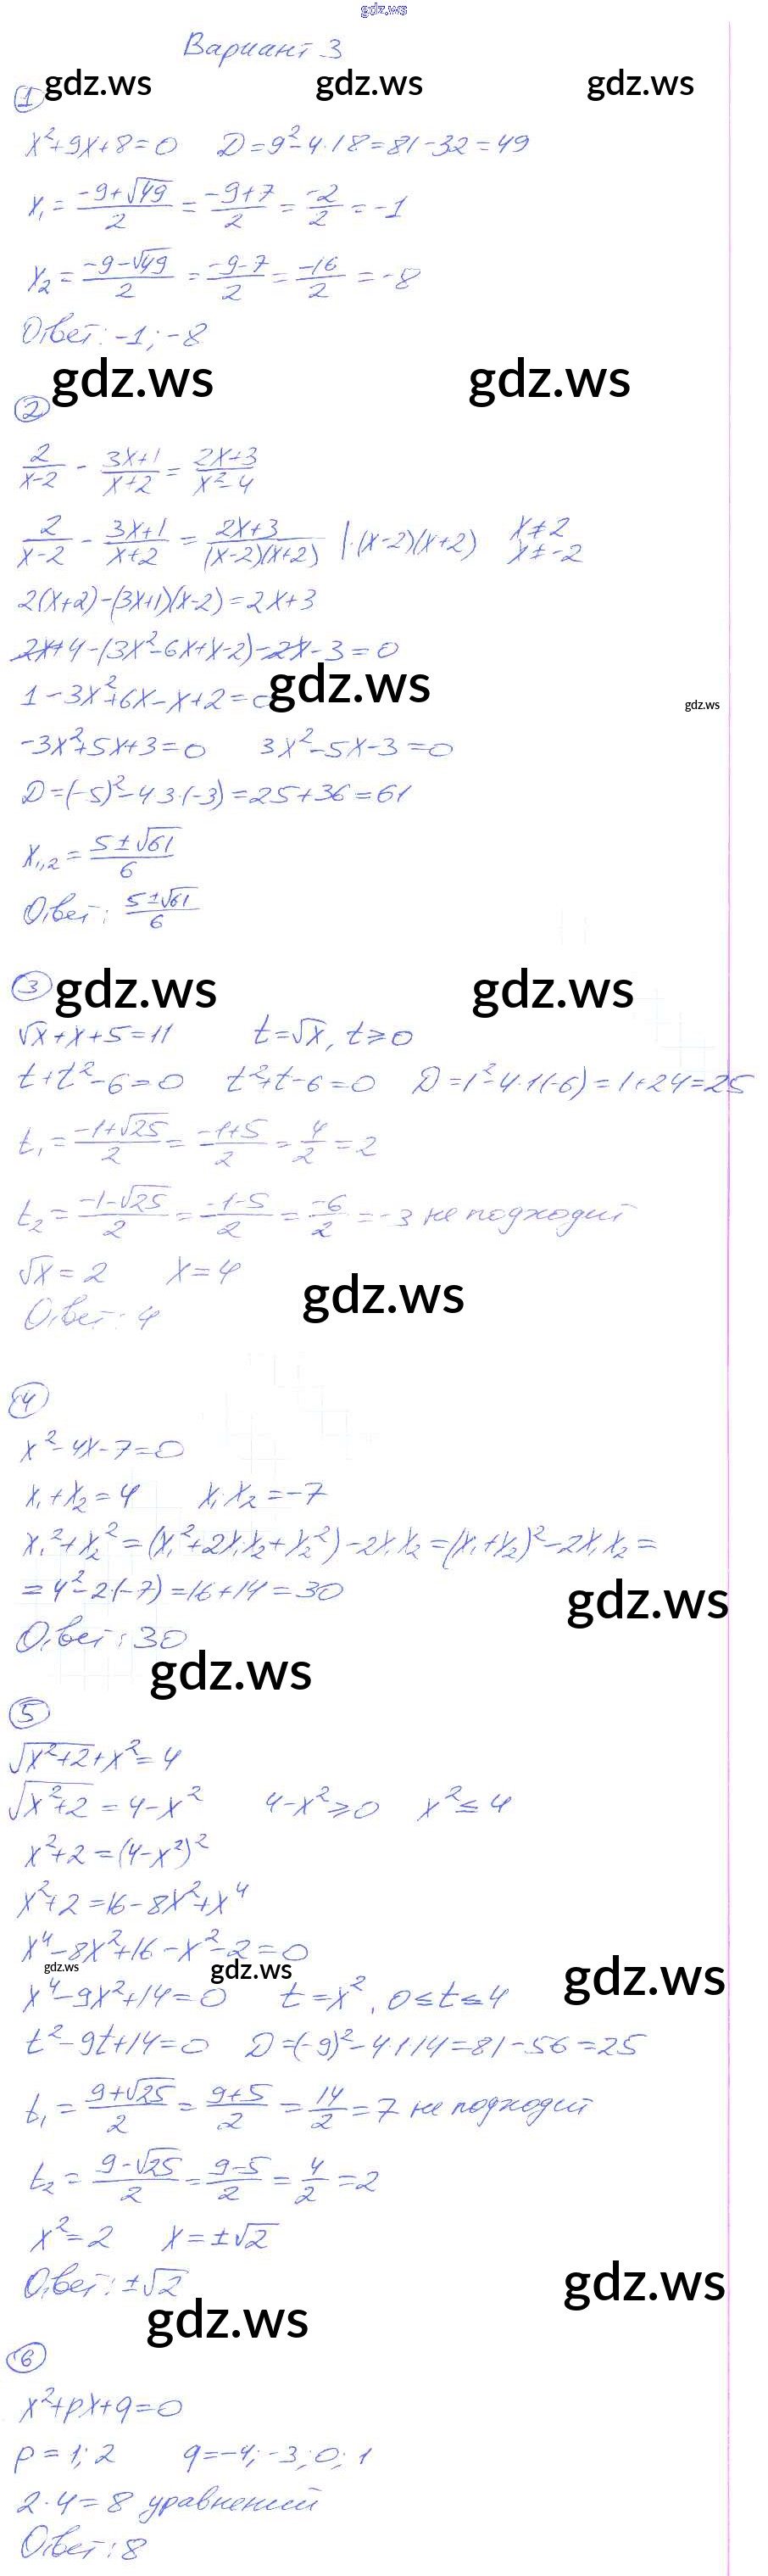 gdz.ws
Вариант 3
gdz.ws gdz.ws gdz.ws
1
x²+9x+8=0 D=9²-4·1·8=81-32=49
x₁=(-9+√49)/2=(-9+7)/2=-2/2=-1
x₂=(-9-√49)/2=(-9-7)/2=-16/2=-8
Ответ: -1; -8
gdz.ws gdz.ws
2
2/(x-2) - (3x+1)/(x+2) = (2x+3)/(x²-4)
2/(x-2) - (3x+1)/(x+2) = (2x+3)/((x-2)(x+2)) |·(x-2)(x+2) x≠2 x≠-2
2(x+2)-(3x+1)(x-2)=2x+3
2x+4-(3x²-6x+x-2)-2x-3=0
gdz.ws
1-3x²+6x-x+2=0
gdz.ws
-3x²+5x+3=0 3x²-5x-3=0
D=(-5)²-4·3·(-3)=25+36=61
x₁,₂=(5±√61)/6
Ответ: (5±√61)/6
3
gdz.ws gdz.ws
√x+x+5=11 t=√x, t≥0
t+t²-6=0 t²+t-6=0 D=1²-4·1·(-6)=1+24=25
t₁=(-1+√25)/2=(-1+5)/2=4/2=2
t₂=(-1-√25)/2=(-1-5)/2=-6/2=-3 не подходит
√x=2 x=4
gdz.ws
Ответ: 4
4
x²-4x-7=0
x₁+x₂=4 x₁·x₂=-7
x₁²+x₂²=(x₁²+2x₁x₂+x₂²)-2x₁x₂=(x₁+x₂)²-2x₁x₂=
=4²-2·(-7)=16+14=30
gdz.ws
Ответ: 30
gdz.ws
5
√(x²+2)+x²=4
√(x²+2)=4-x² 4-x²≥0 x²≤4
x²+2=(4-x²)²
x²+2=16-8x²+x⁴
x⁴-8x²+16-x²-2=0
gdz.ws gdz.ws gdz.ws
x⁴-9x²+14=0 t=x², 0≤t≤4
t²-9t+14=0 D=(-9)²-4·1·14=81-56=25
t₁=(9+√25)/2=(9+5)/2=14/2=7 не подходит
t₂=(9-√25)/2=(9-5)/2=4/2=2
x²=2 x=±√2
Ответ: ±√2
gdz.ws
gdz.ws
6
x²+px+q=0
p=1; 2 q=-4; -3; 0; 1
2·4=8 уравнений
Ответ: 8